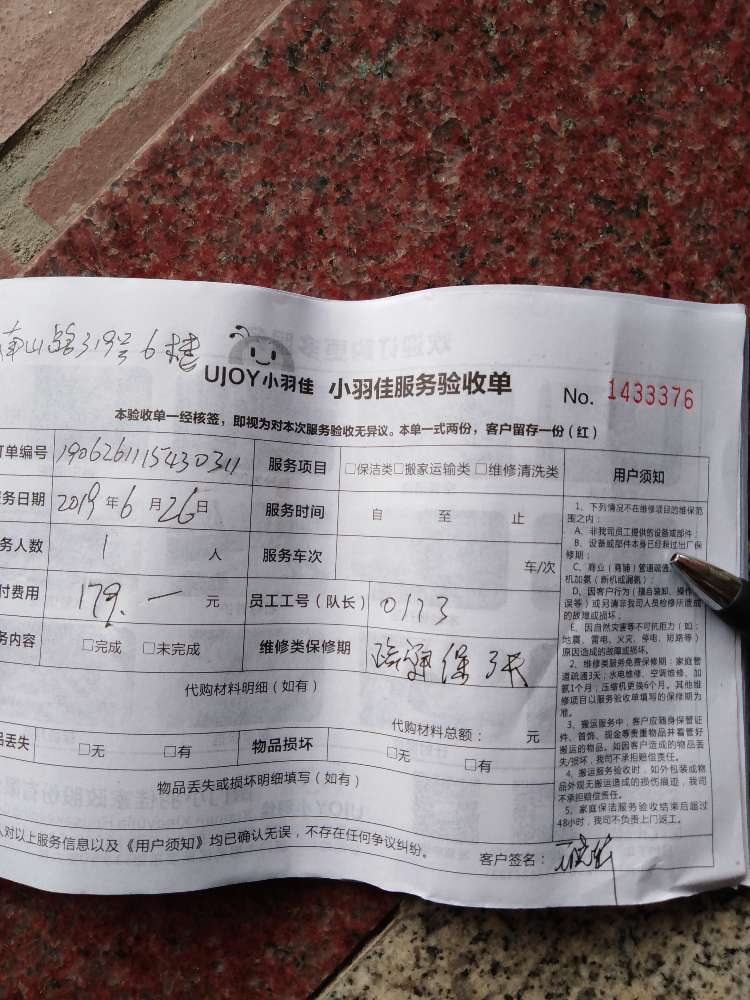 南山路319号6楼
UJOY小羽佳 小羽佳服务验收单 No. 1433376
本验收单一经核签，即视为对本次服务验收无异议。本单一式两份，客户留存一份（红）
订单编号 1906261115430311 服务项目 □保洁类□搬家运输类□维修清洗类 用户须知
务日期 2019年6月26日 服务时间 自 至 止
务人数 1 人 服务车次 车/次
付费用 179.— 元 员工工号（队长） 0173
务内容 □完成 □未完成 维修类保修期 疏通保3天
代购材料明细（如有）
代购材料总额： 元
品丢失 □无 □有 物品损坏 □无 □有
物品丢失或损坏明细填写（如有）
人对以上服务信息以及《用户须知》均已确认无误，不存在任何争议纠纷。
客户签名：
1、下列情况不在维修项目的维保范
围之内：
A、非我司员工提供的设备或部件；
B、设备或部件本身已经超过出厂保
修期；
C、商业（商铺）管道疏通
机加氨（断机或漏氨）；
D、因客户行为（擅自装卸、操作
误等）或另请非我司人员检修所造成
的故障或损坏；
E、因自然灾害等不可抗拒力（如：
地震、雷电、火灾、停电、短路等）
原因造成的故障或损坏。
2、维修类服务免费保修期：家庭管
道疏通3天；水电维修、空调维修、加
氨1个月；压缩机更换6个月。其他维
修项目以服务验收单填写的保修期为
准。
3、搬运服务中，客户应随身保管证
件、首饰、现金等贵重物品并看管好
搬运的物品。如因客户造成的物品丢
失/损坏，我司不承担赔偿责任。
4、搬运服务验收时，如外包装或物
品外观无搬运造成的损伤痕迹，我司
不承担赔偿责任。
5、家庭保洁服务验收结束后超过
48小时，我司不负责上门返工。